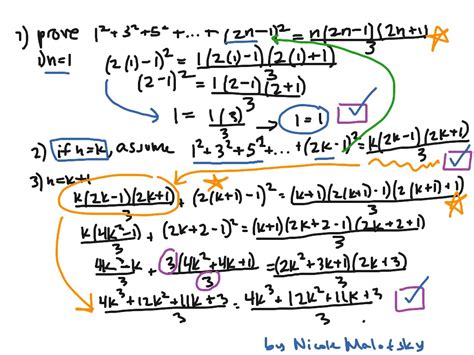 1) prove 1²+3²+5²+...+(2n-1)² = n(2n-1)(2n+1)/3
1) n=1 (2(1)-1)² = 1(2(1)-1)(2(1)+1)/3
(2-1)² = 1(2-1)(2+1)/3
1 = 1(3)/3 → 1=1
2) if n=k, assume 1²+3²+5²+...+(2k-1)² = k(2k-1)(2k+1)/3
3) n=k+1
k(2k-1)(2k+1)/3 + (2(k+1)-1)² = (k+1)(2(k+1)-1)(2(k+1)+1)/3
k(4k²-1)/3 + (2k+2-1)² = (k+1)(2k+2-1)(2k+2+1)/3
4k³-k/3 + 3(4k²+4k+1)/3 = (2k²+3k+1)(2k+3)/3
4k³+12k²+11k+3/3 = 4k³+12k²+11k+3/3
by Nicole Malofsky